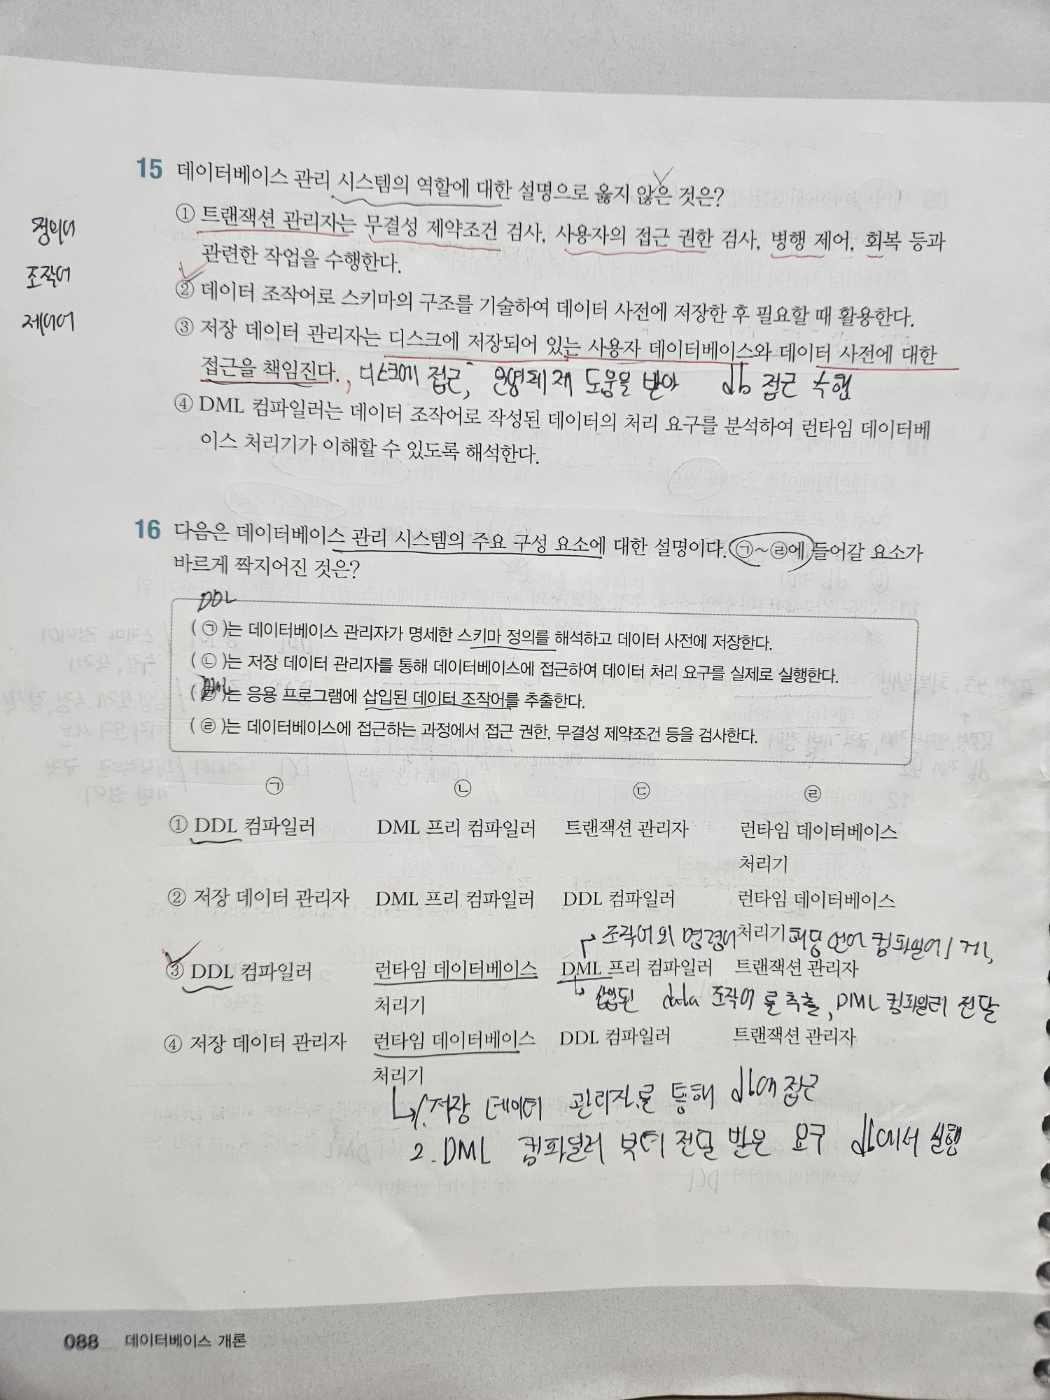 15 데이터베이스 관리 시스템의 역할에 대한 설명으로 옳지 않은 것은?
① 트랜잭션 관리자는 무결성 제약조건 검사, 사용자의 접근 권한 검사, 병행 제어, 회복 등과
관련한 작업을 수행한다.
② 데이터 조작어로 스키마의 구조를 기술하여 데이터 사전에 저장한 후 필요할 때 활용한다.
③ 저장 데이터 관리자는 디스크에 저장되어 있는 사용자 데이터베이스와 데이터 사전에 대한
접근을 책임진다. , 디스크에 접근, 운영체제 도움을 받아 db 접근 수행
④ DML 컴파일러는 데이터 조작어로 작성된 데이터의 처리 요구를 분석하여 런타임 데이터베
이스 처리기가 이해할 수 있도록 해석한다.
정의어
조작어
제어어
16 다음은 데이터베이스 관리 시스템의 주요 구성 요소에 대한 설명이다. ㉠~㉣에 들어갈 요소가
바르게 짝지어진 것은?
DDL
( ㉠ )는 데이터베이스 관리자가 명세한 스키마 정의를 해석하고 데이터 사전에 저장한다.
( ㉡ )는 저장 데이터 관리자를 통해 데이터베이스에 접근하여 데이터 처리 요구를 실제로 실행한다.
( ㉢ )는 응용 프로그램에 삽입된 데이터 조작어를 추출한다.
( ㉣ )는 데이터베이스에 접근하는 과정에서 접근 권한, 무결성 제약조건 등을 검사한다.
㉠ ㉡ ㉢ ㉣
① DDL 컴파일러 DML 프리 컴파일러 트랜잭션 관리자 런타임 데이터베이스
처리기
② 저장 데이터 관리자 DML 프리 컴파일러 DDL 컴파일러 런타임 데이터베이스
처리기
조작어 외 명령어 해당 언어 컴파일러
③ DDL 컴파일러 런타임 데이터베이스 DML 프리 컴파일러 트랜잭션 관리자
처리기
삽입된 data 조작어를 추출, DML 컴파일러 전달
④ 저장 데이터 관리자 런타임 데이터베이스 DDL 컴파일러 트랜잭션 관리자
처리기
1. 저장 데이터 관리자를 통해 db에 접근
2. DML 컴파일러 부터 전달 받은 요구 db에서 실행
088 데이터베이스 개론